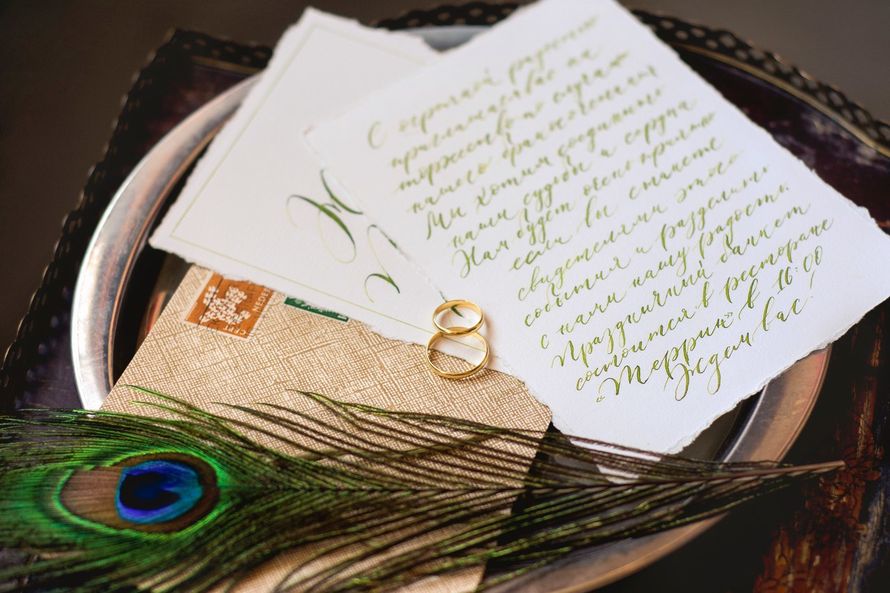 С огромной радостью
приглашаем вас на
торжество по случаю
нашего бракосочетания
Мы хотим соединить
наши судьбы и сердца
Нам будет очень приятно
если вы станете
свидетелями этого
события и разделите
с нами нашу радость.
Праздничный банкет
состоится в ресторане
«Террин» в 16:00
Ждем вас!